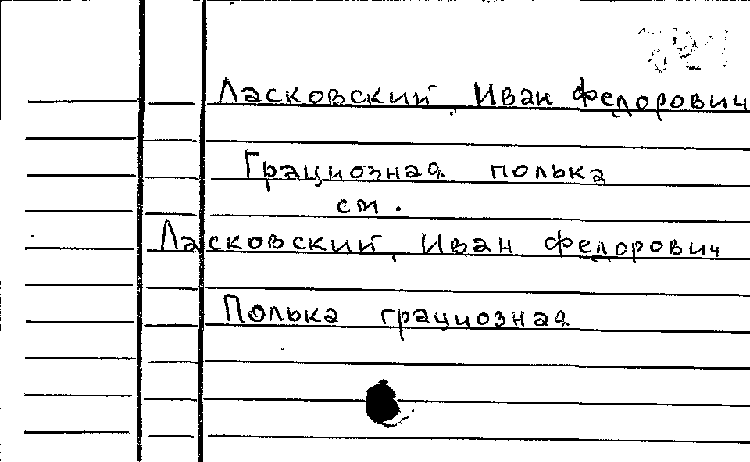 Ласковский, Иван Федорович
Грациозная полька
см.
Ласковский, Иван Федорович
Полька грациозная